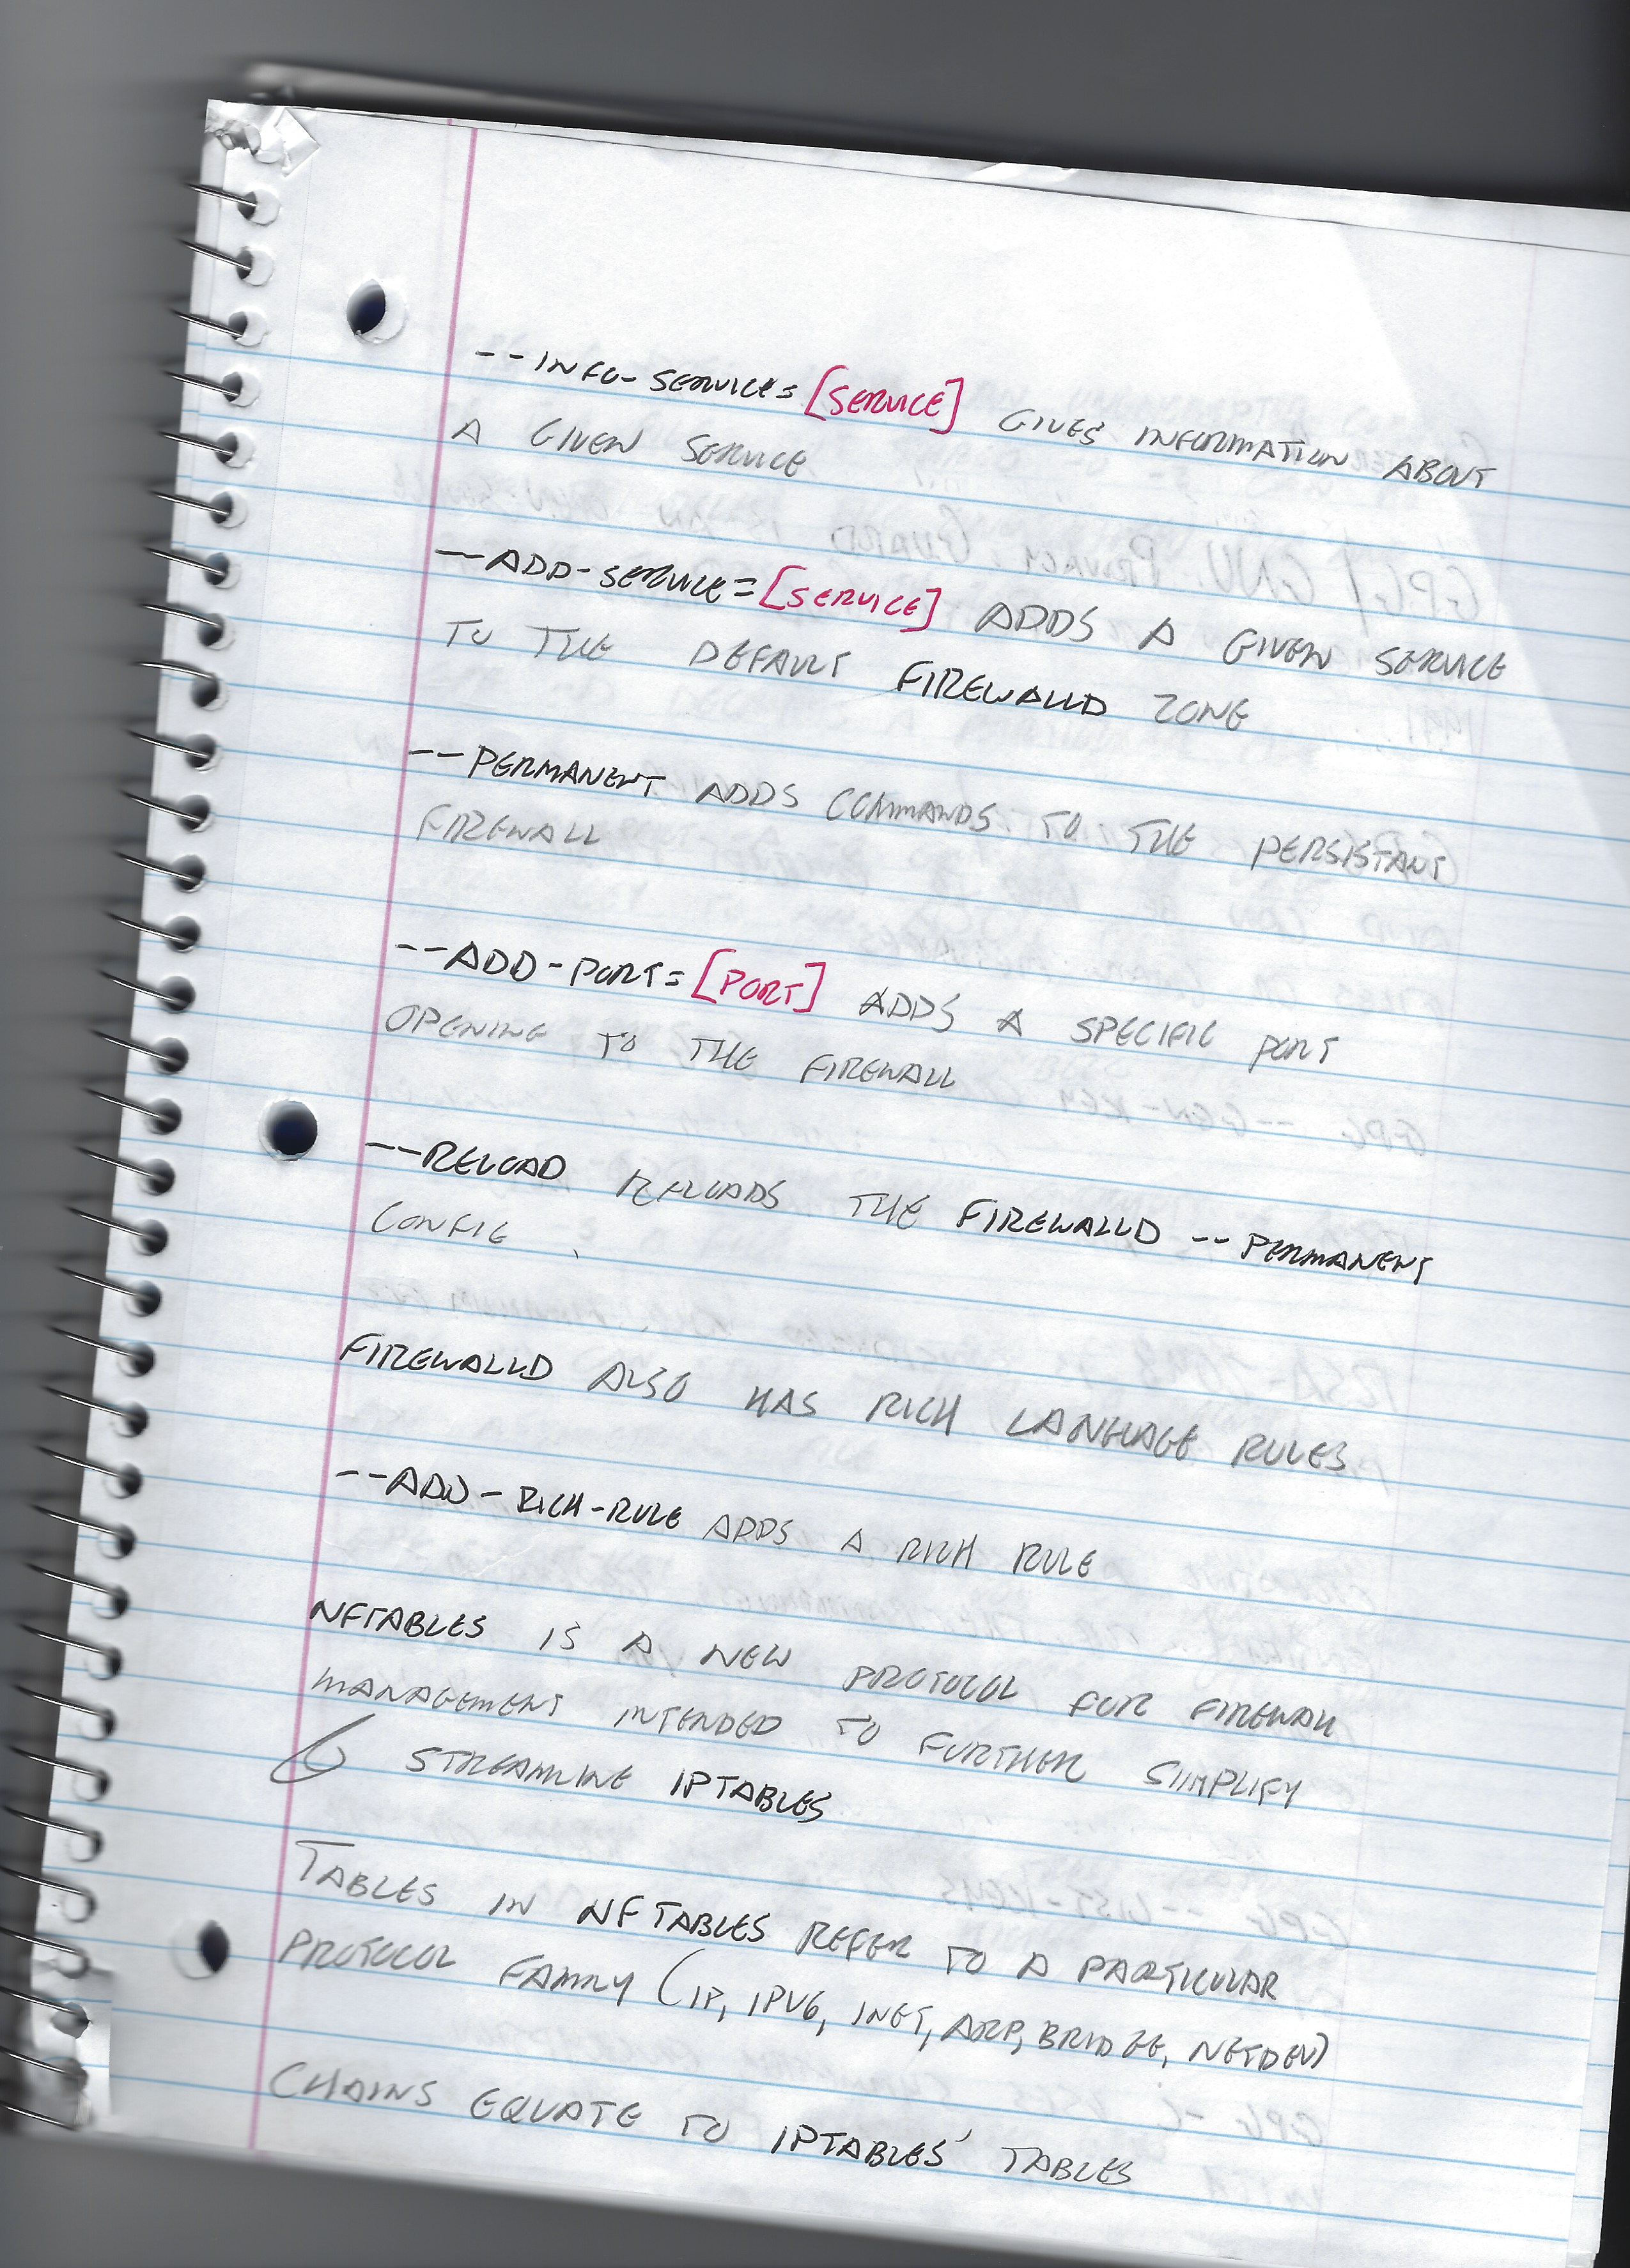 --INFO-SERVICE=[SERVICE] GIVES INFORMATION ABOUT
A GIVEN SERVICE
--ADD-SERVICE=[SERVICE] ADDS A GIVEN SERVICE
TO THE DEFAULT FIREWALLD ZONE
--PERMANENT ADDS COMMANDS TO THE PERSISTANT
FIREWALL
--ADD-PORT=[PORT] ADDS A SPECIFIC PORT
OPENING TO THE FIREWALL
--RELOAD RELOADS THE FIREWALLD --PERMANENT
CONFIG
FIREWALLD ALSO HAS RICH LANGUAGE RULES
--ADD-RICH-RULE ADDS A RICH RULE
NFTABLES IS A NEW PROTOCOL FOR FIREWALL
MANAGEMENT INTENDED TO FURTHER SIMPLIFY
& STREAMLINE IPTABLES
TABLES IN NFTABLES REFER TO A PARTICULAR
PROTOCOL FAMILY (IP, IPV6, INET, ARP, BRIDGE, NETDEV)
CHAINS EQUATE TO IPTABLES' TABLES